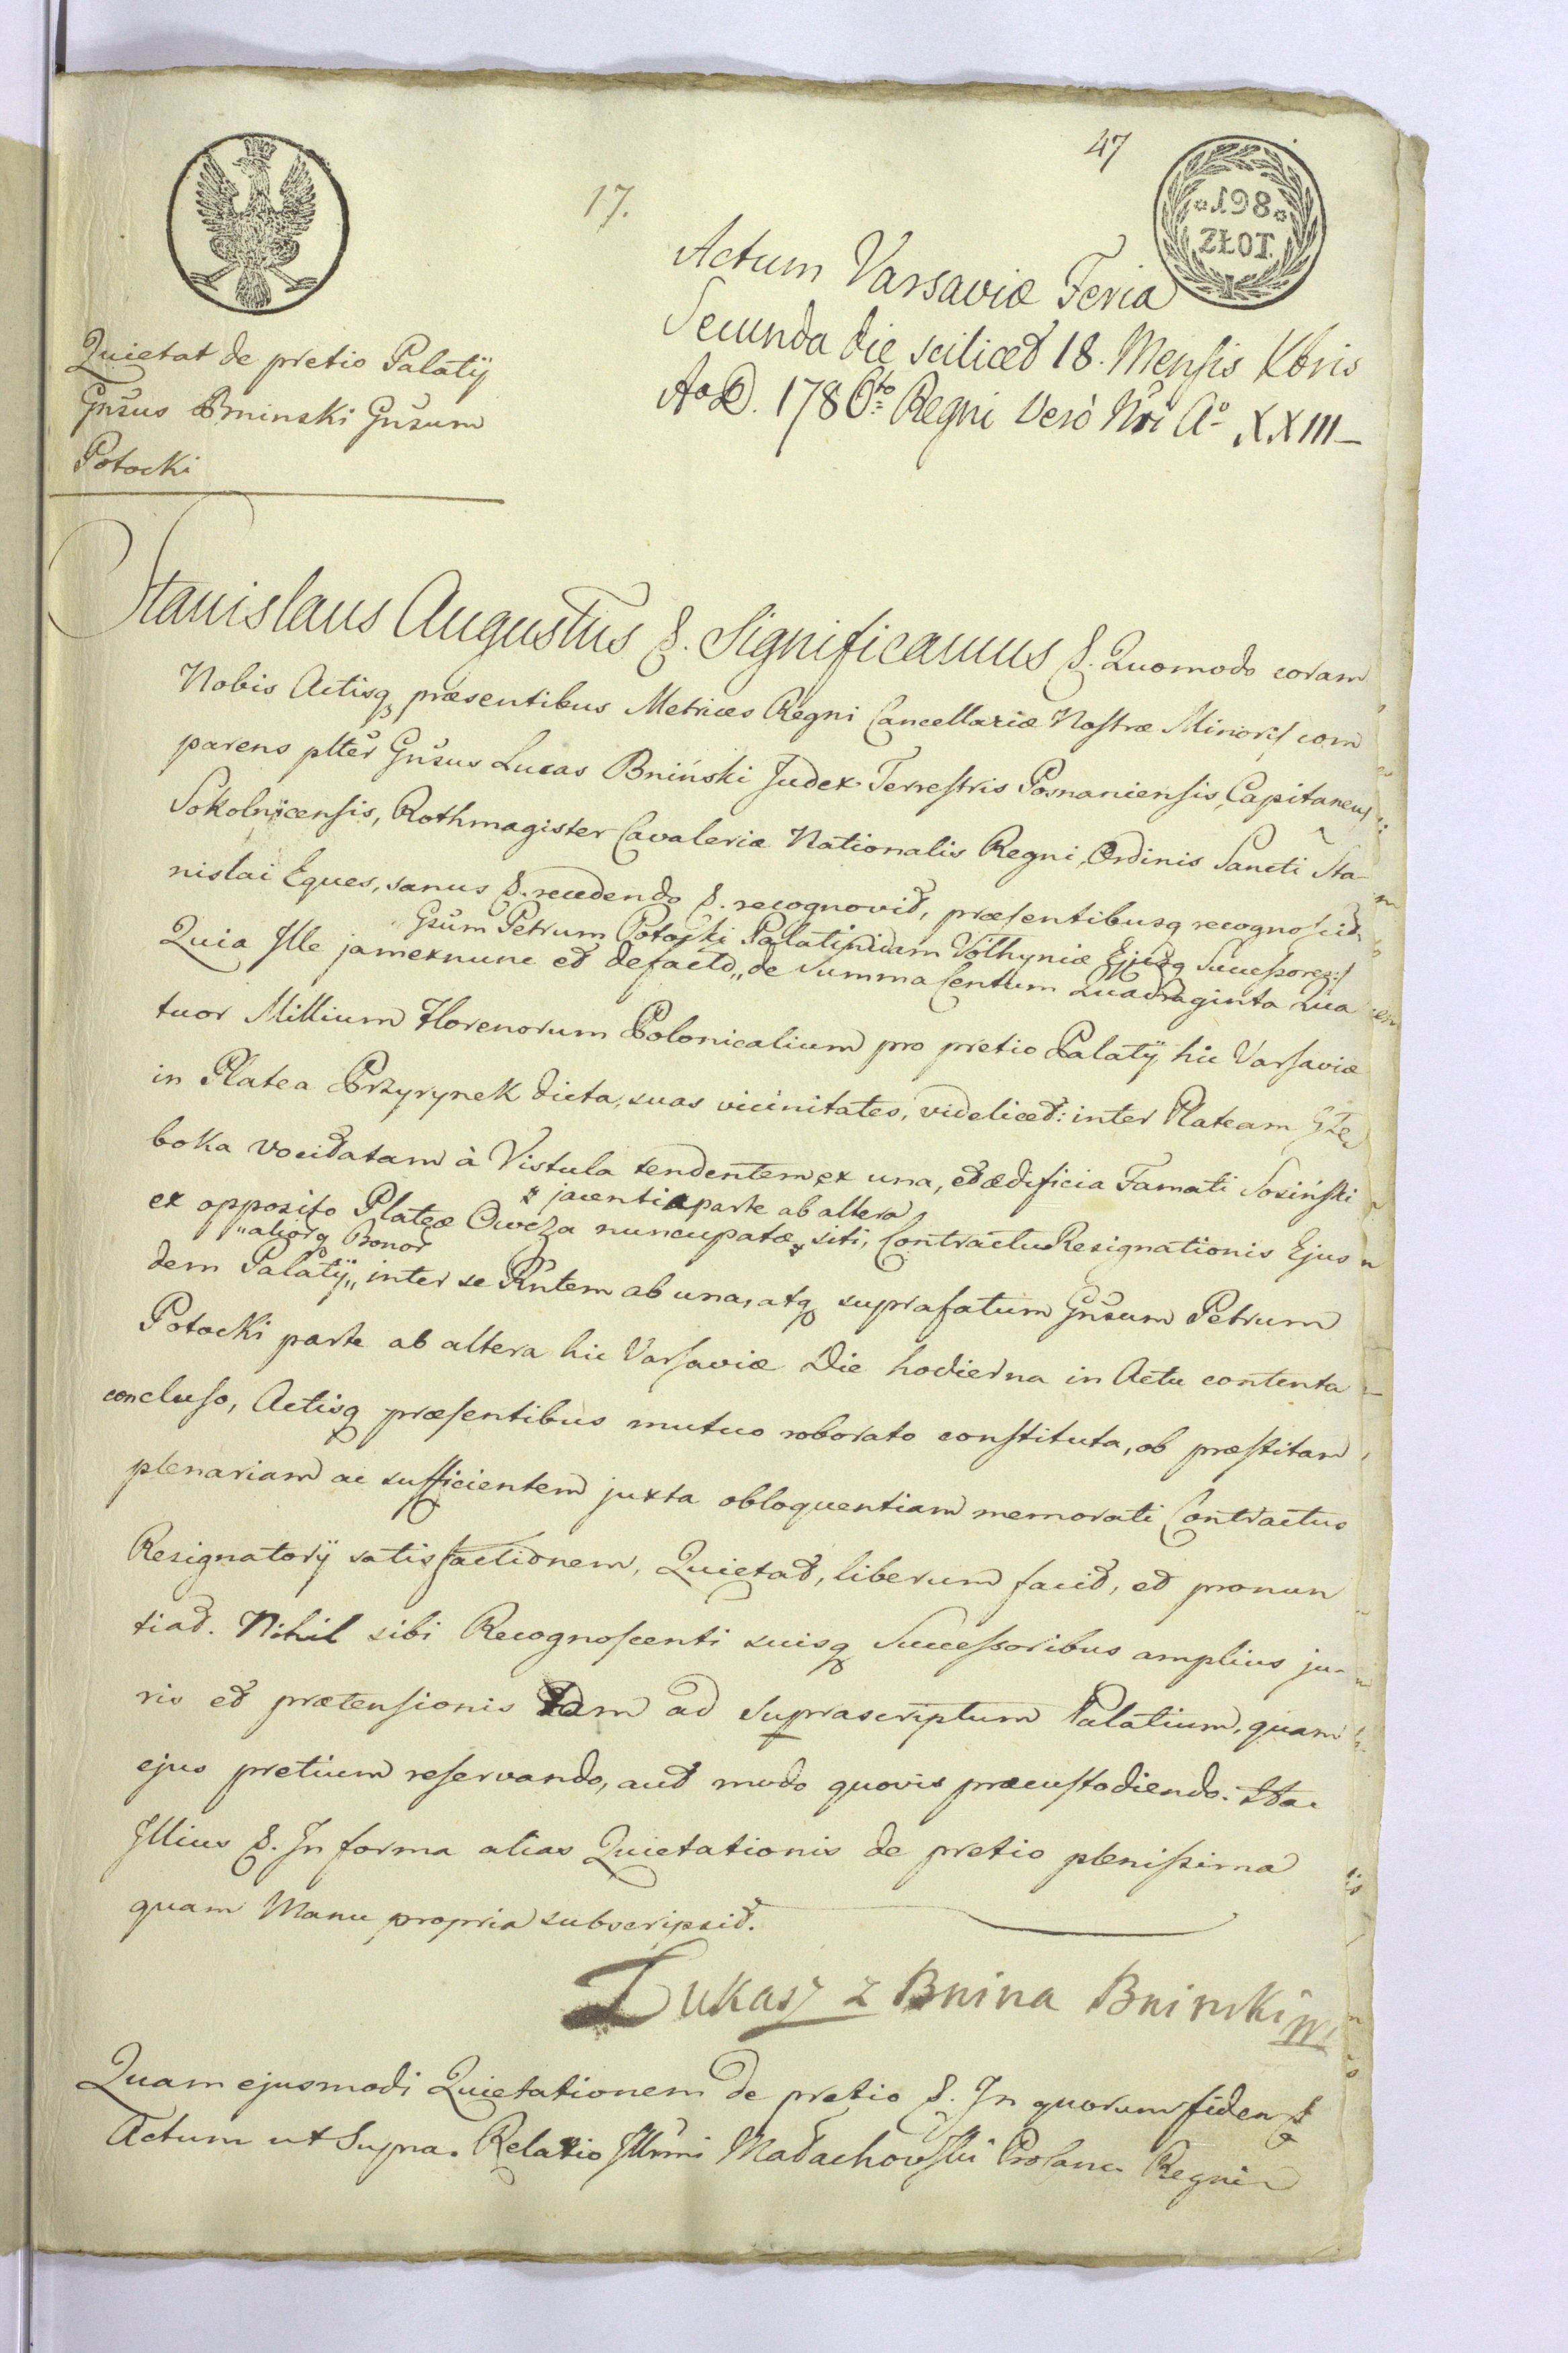 47
17.
198
ZŁOT.
Actum Varsaviæ Feria
Secunda die scilicet 18. Mensis Xbris
Ao D. 1786to Regni Verò Nri Ao XXIII
Quietat de pretio Palatÿ
Gnsus Bninski Gnsum
Potocki
Stanislaus Augustus &. Significamus &. Quomodo coram
Nobis Actisq præsentibus Metrices Regni Cancellariæ Nostræ Minoris com
parens plter Gnsus Lucas Bniński Judex Terrestris Posnaniensis, Capitaneus
Sokolnicensis, Rothmagister Cavaleriæ Nationalis Regni, Ordinis Sancti Sta-
nislai Eques, sanus &. recedendo &. recognovit, præsentibusq recognoscit,
Gsum Petrum Potocki Palatinidam Volhyniæ Ejusq Successores
Quia Ille jamexnunc et defacto „ de Summa Centum Quadraginta Qua
tuor Millium Florenorum Polonicalium pro pretio Palatÿ hic Varsaviæ
in Platea Przyrynek dicta, suas vicinitates, videlicet: inter Plateam Głę
boka vocitatam à Vistula tendentem ex una, et ædificia Famati Sosiński
jacentia parte ab altera
ex opposito Plateæ Owcza nuncupatæ siti, Contractu Resignationis Ejus
„aliorq Bonor
dem Palatÿ „ inter se Rntem ab una, atq suprafatum Gnsum Petrum
Potocki parte ab altera hic Varsaviæ Die hodierna in Actu contenta
concluso, Actisq præsentibus mutuo roborato constituta, ob præstitam
plenariam ac sufficientem juxta obloquentiam memorati Contractus
Resignatorÿ satisfactionem, Quietat, liberum facit, et pronun
tiat. Nihil sibi Recognoscenti suisq Successoribus amplius ju-
ris et prætensionis tam ad Suprascriptum Palatium, quam
ejus pretium reservando, aut modo quovis præcustodiendo.
Illius &. In forma alias Quietationis de pretio plenissima
quam Manu propria subscripsit.
Łukasz z Bnina Bninski
Quam ejusmodi Quietationem de pretio &. In quorum fidem &
Actum ut Supra. Relatio Illmi Małachowski Procanc Regni